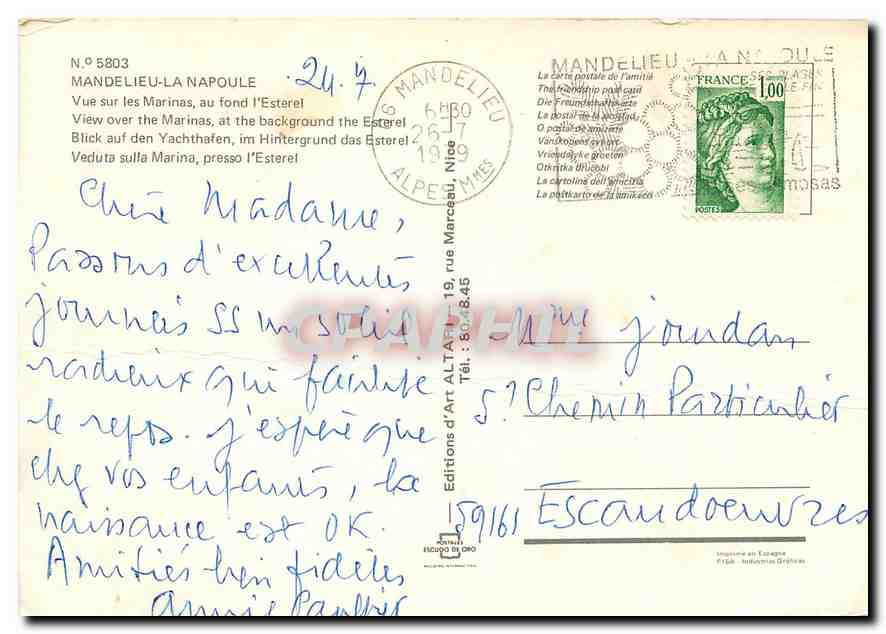 N.º 5803
MANDELIEU-LA NAPOULE
Vue sur les Marinas, au fond l'Esterel
View over the Marinas, at the background the Esterel
Blick auf den Yachthafen, im Hintergrund das Esterel
Veduta sulla Marina, presso l'Esterel
24.7
06 MANDELIEU
6H30
26-7
1979
ALPES MMES
MANDELIEU - LA NAPOULE
La carte postale de l'amitié
The friendship post card
Die Freundschaftskarte
La postal de la amistad
Vriendelijke groeten
La cartolina dell'amicizia
La postkarto de la amikeco
FRANCE
1,00
POSTES
Chère Madame,
Passons d'excellentes
journées SS un soleil
radieux qui facilite
le repos. J'espère que
chez vos enfants, la
naissance est OK.
Amitiés bien fidèles
Annie
Editions d'Art ALTARI — 19, rue Marceau, Nice
Tél. : 80.48.45
CPARHIL
Mme Jourdan
51 Chemin Particulier
59161 Escaudoeuvres
POSTALES
ESCUDO DE ORO
Imprimé en Espagne
FISA - Industrias Gráficas